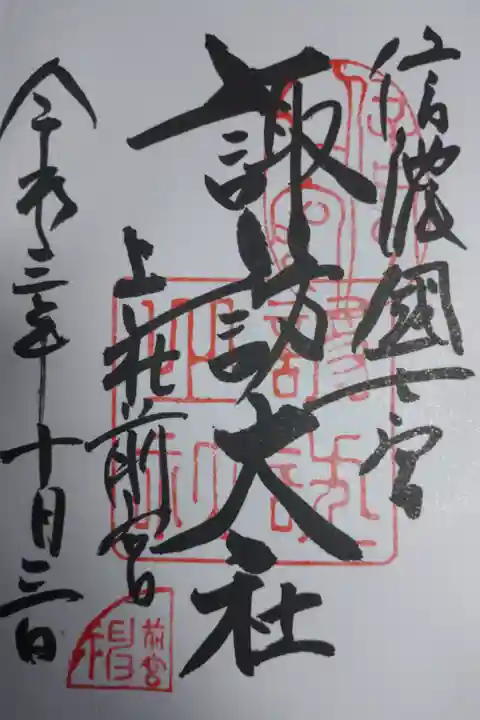 信濃國一宮
諏訪大社
上社前宮
令和三年十月三日
前宮